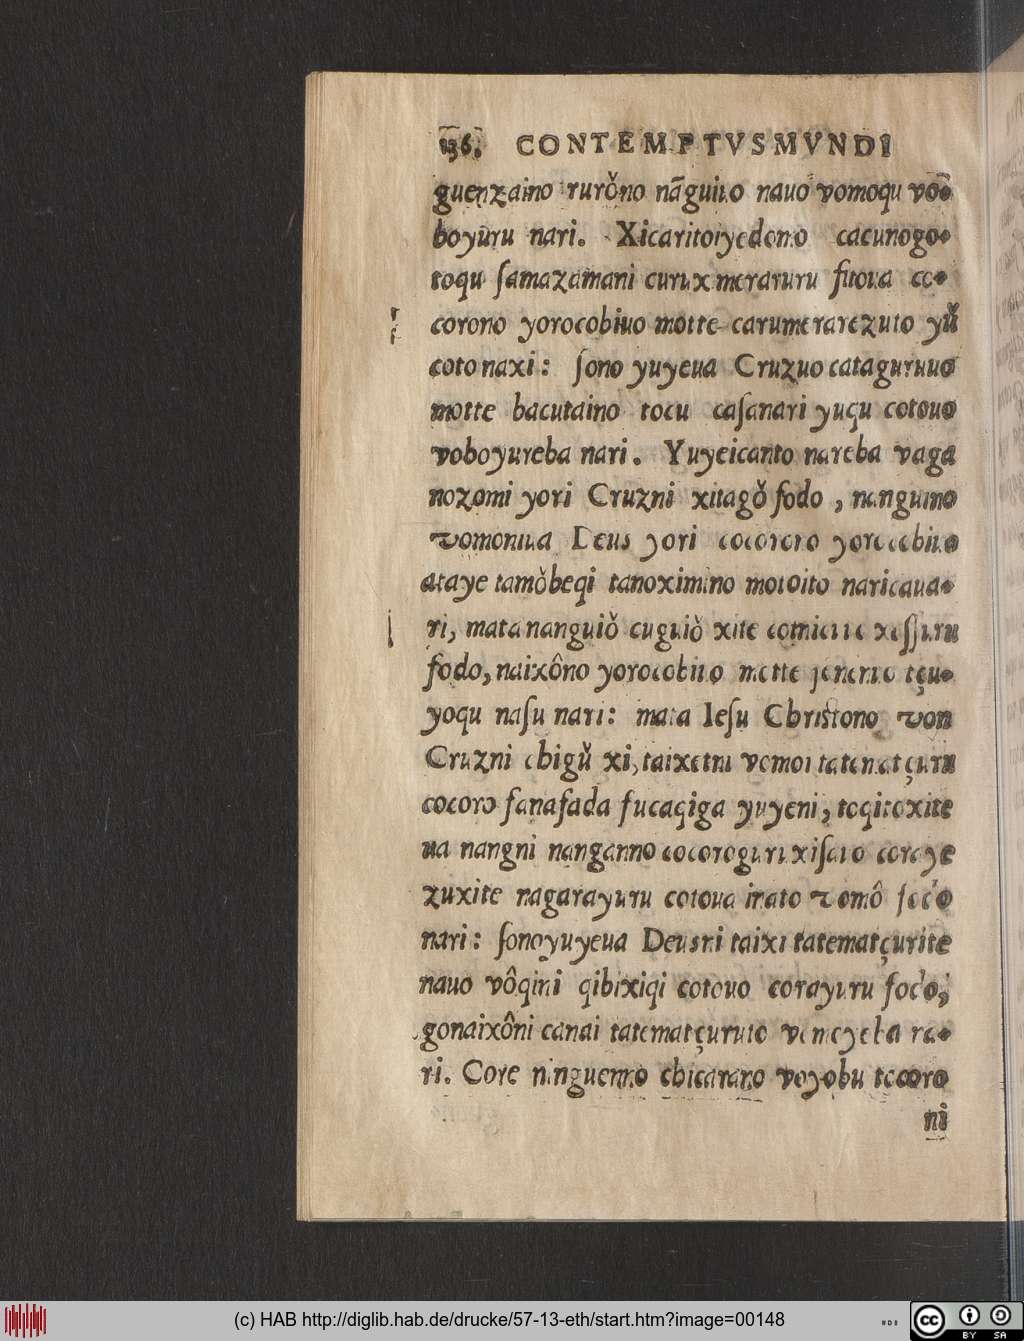 136. CONTEMPTVS MVNDI
guenzaino rurǒno nãguiuo nauo vomoqu võo-
boyuru nari. Xicaritoiyedomo cacunogo-
toqu ſamazamani curuximeraruru fitoua co-
corono yorocobiuo motte carumerarezuto yǔ
coto naxi: ſono yuyeua Cruzuo cataguruuo
motte bacutaino tocu caſanari yuqu cotouo
voboyureba nari. Yuyeicanto nareba vaga
nozomi yori Cruzni xitagǒ fodo, nanguino
vomoniua Deus yori cocorono yorocobiuo
ataye tamǒbeqi tanoximino motoito naricaua-
ri, mata nanguiǒ cuguiǒ xite comiuo xeſſuru
fodo, naixôno yorocobiuo motte tçu-
yoqu naſu nari: mata Ieſu Chriſtono von
Cruzni chigǔ xi, taixetni vomoi tatematçuru
cocoro fanafada fucaqiga yuyeni, toqitoxite
ua nangni nanganno cocoroguruxiſauo coraye
zuxite nagarayuru cotoua inato vomô fodo
nari: ſonoyuyeua Deusni taixi tatematçurite
nauo vôqini qibixiqi cotouo corayuru fodo,
gonaixôni canai tatematçuruto voboyeba na-
ri. Core ninguenno chicarano voyobu tocoro
ni
(c) HAB http://diglib.hab.de/drucke/57-13-eth/start.htm?image=00148
cc BY SA